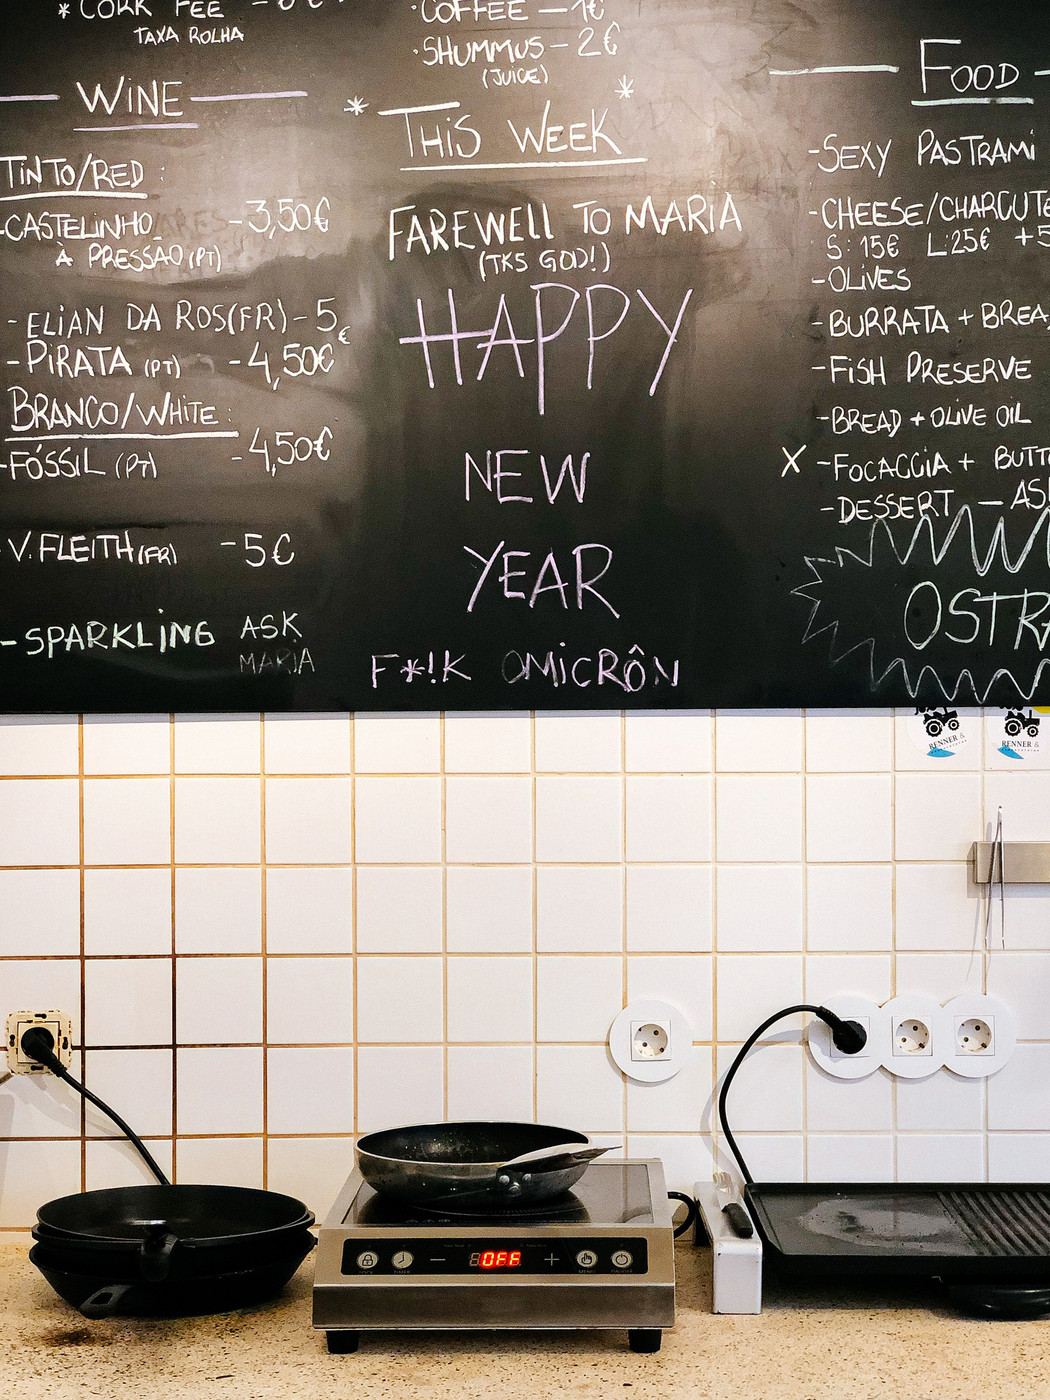 * CORK FEE
TAXA ROLHA
WINE
TINTO/RED :
-CASTELINHO -3,50€
À PRESSÃO (PT)
- ELIAN DA ROS(FR) - 5€
- PIRATA (PT) - 4,50€
BRANCO/WHITE :
-FÓSSIL (PT) - 4,50€
- V. FLEITH (FR) - 5€
- SPARKLING ASK
MARIA
·COFFEE - 1€
·SHUMMUS - 2€
(JUICE)
* THIS WEEK *
FAREWELL TO MARIA
(TKS GOD!)
HAPPY
NEW
YEAR
F*!K OMICRÔN
FOOD
-SEXY PASTRAMI
-CHEESE/CHARCUTE
S: 15€ L: 25€ +5
-OLIVES
-BURRATA + BREA
-FISH PRESERVE
-BREAD + OLIVE OIL
X -FOCACCIA + BUTT
-DESSERT - AS
OSTRA
RENNER &
RENNER &
OFF